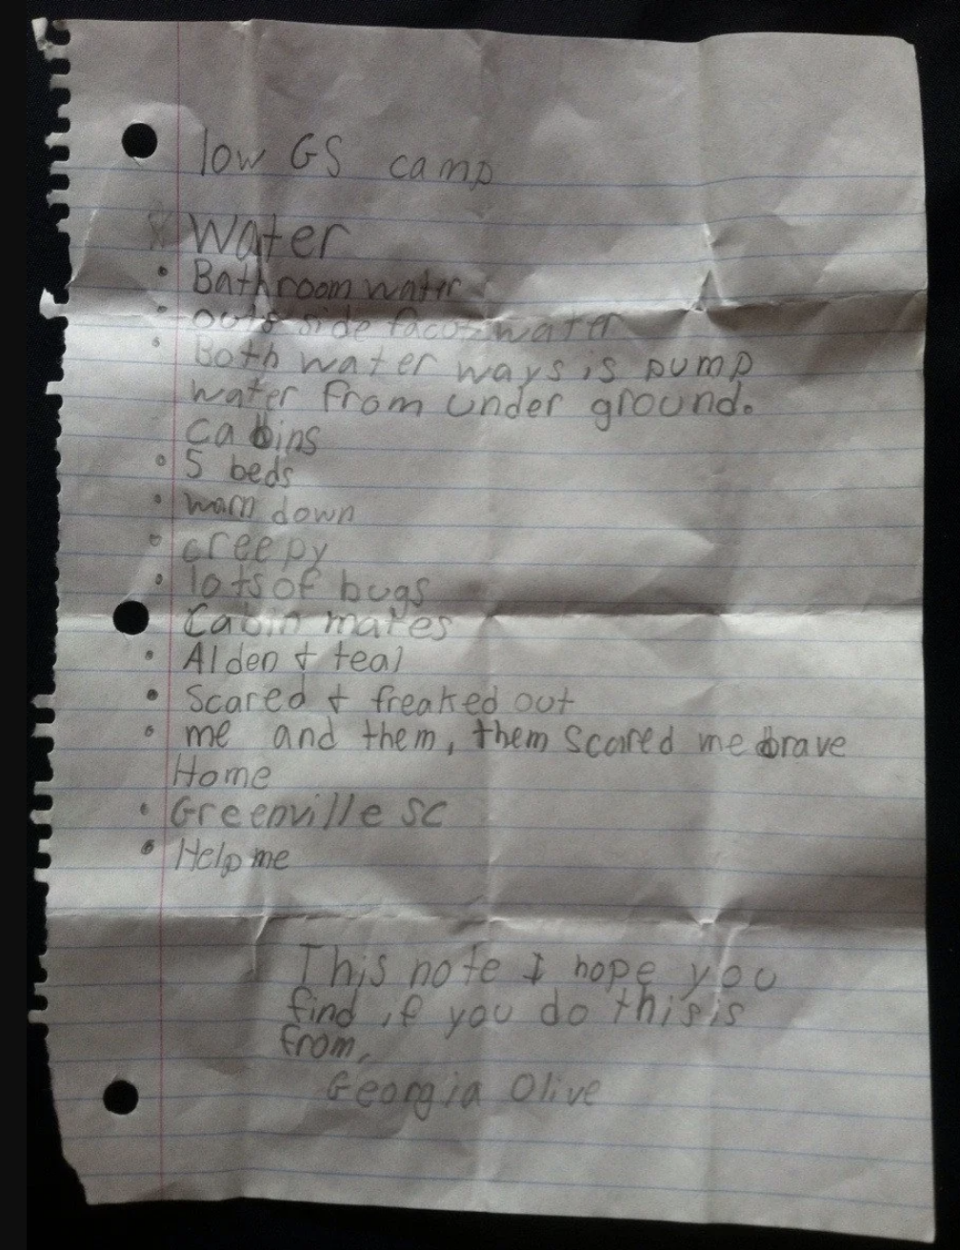 low GS camp
Water
• Bathroom water
• outs side facot water
• Both water ways is pump
water from under ground.
Cabins
• 5 beds
• warn down
• creepy
• lots of bugs
Cabin mates
• Alden + teal
• Scared + freaked out
• me and them, them scared me brave
Home
• Greenville SC
• Help me
This note I hope you
find if you do this is
from,
Georgia Olive